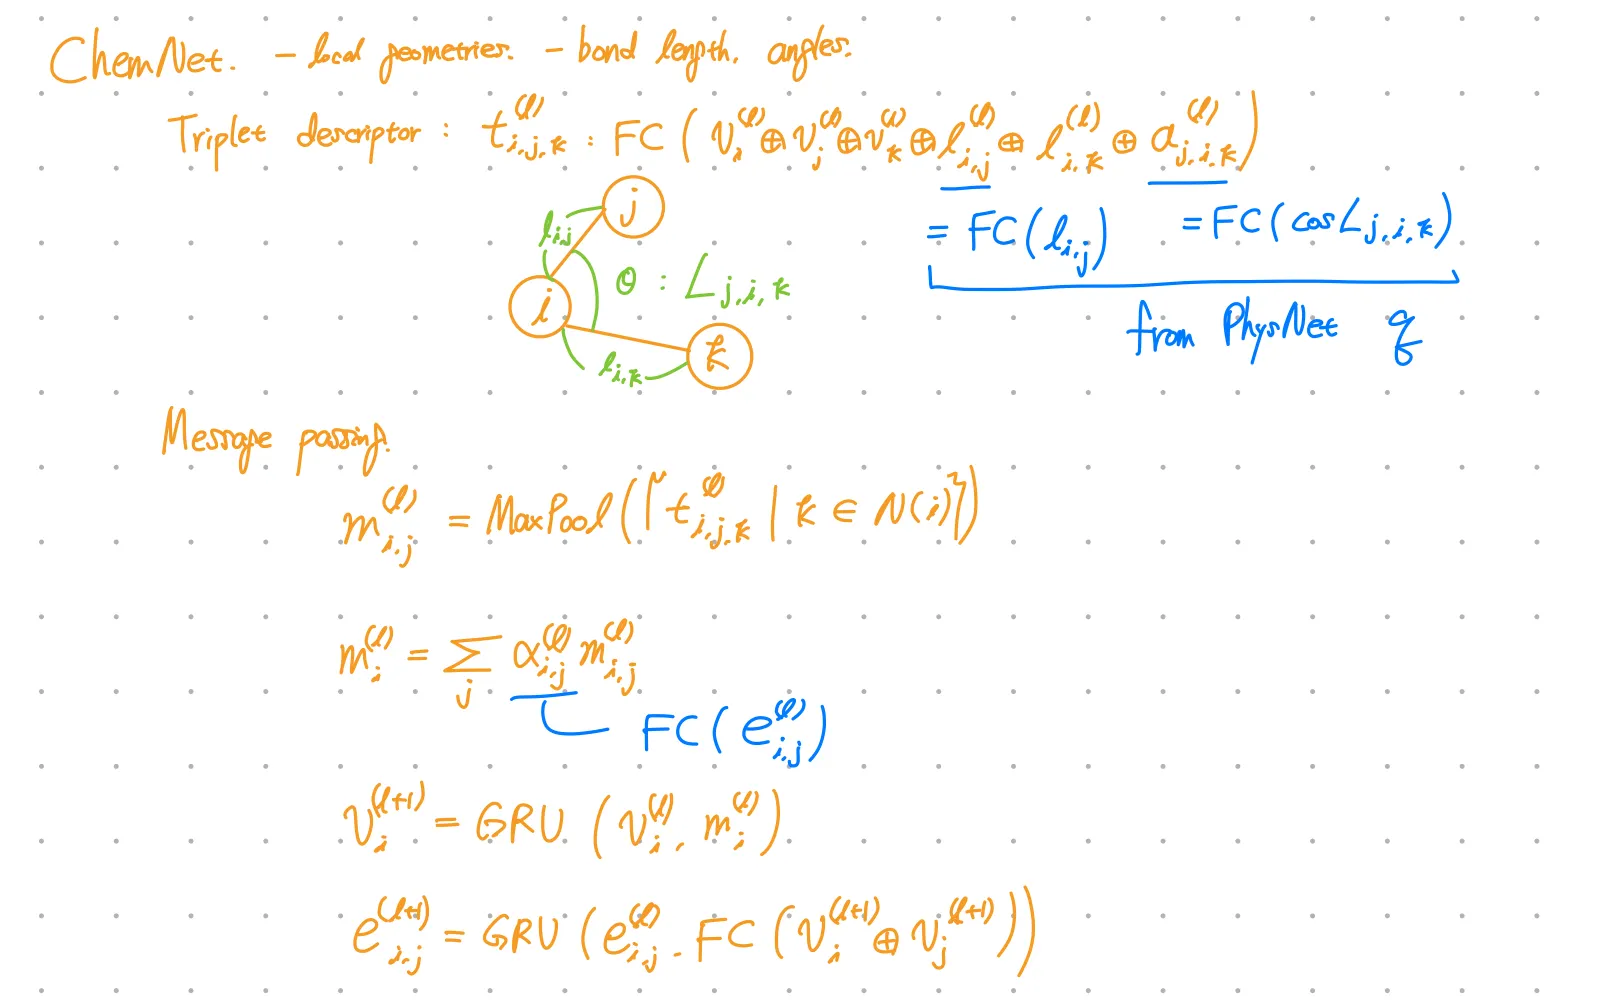 ChemNet. - local geometries. - bond length, angles.
Triplet descriptor : t_{i,j,k}^{(l)} : FC ( v_i^{(l)} ⊕ v_j^{(l)} ⊕ v_k^{(l)} ⊕ l_{i,j}^{(l)} ⊕ l_{i,k}^{(l)} ⊕ a_{j,i,k}^{(l)} )
= FC ( l_{i,j} ) = FC ( cos∠_{j,i,k} )
from PhysNet
j
l_{i,j}
θ : ∠_{j,i,k}
i
k
l_{i,k}
Message passing.
m_{i,j}^{(l)} = MaxPool ( { t_{i,j,k}^{(l)} | k ∈ N(i) } )
m_i^{(l)} = Σ_j α_{i,j}^{(l)} m_{i,j}^{(l)}
FC ( e_{i,j}^{(l)} )
v_i^{(l+1)} = GRU ( v_i^{(l)}, m_i^{(l)} )
e_{i,j}^{(l+1)} = GRU ( e_{i,j}^{(l)}, FC ( v_i^{(l+1)} ⊕ v_j^{(l+1)} ) )